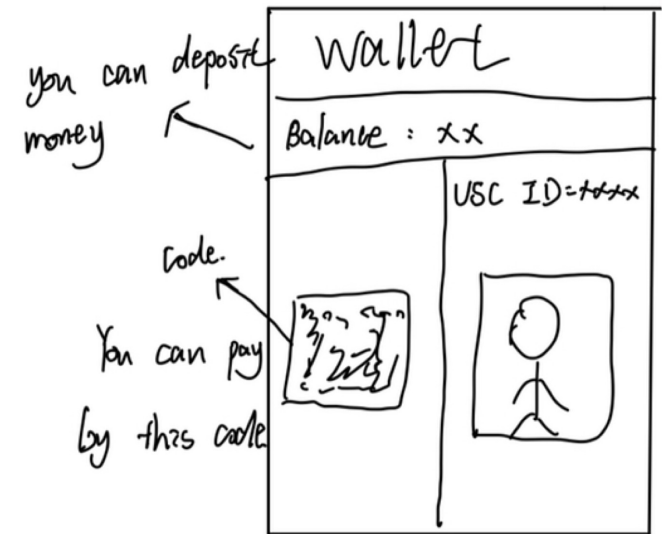 Wallet
you can deposit
money
Balance : xx
USC ID=xxxx
code.
You can pay
by this code